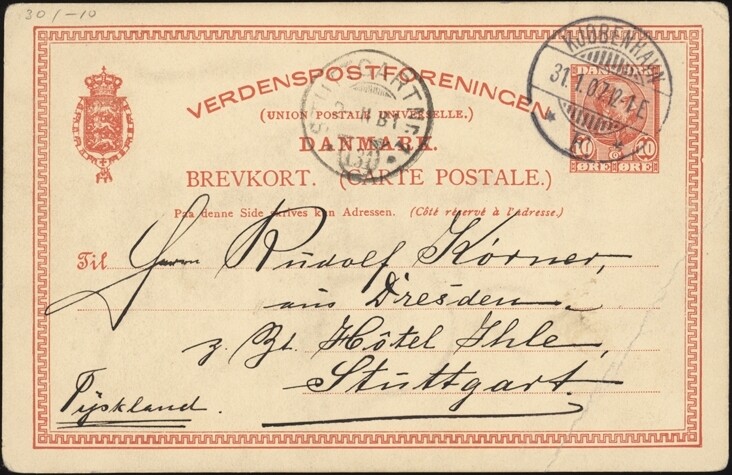 30/-10
VERDENSPOSTFORENINGEN
(UNION POSTALE UNIVERSELLE.)
DANMARK.
BREVKORT. (CARTE POSTALE.)
Paa denne Side skrives kun Adressen. (Côté réservé à l'adresse.)
KJØBENHAVN
31.1.07. 12-1.E
K.
DANMARK
10 10
ØRE ØRE
STUTTGART
Til Herrn Rudolf Körner,
aus Dresden
z. Zt. Hôtel Ihle,
Stuttgart.
Tyskland.